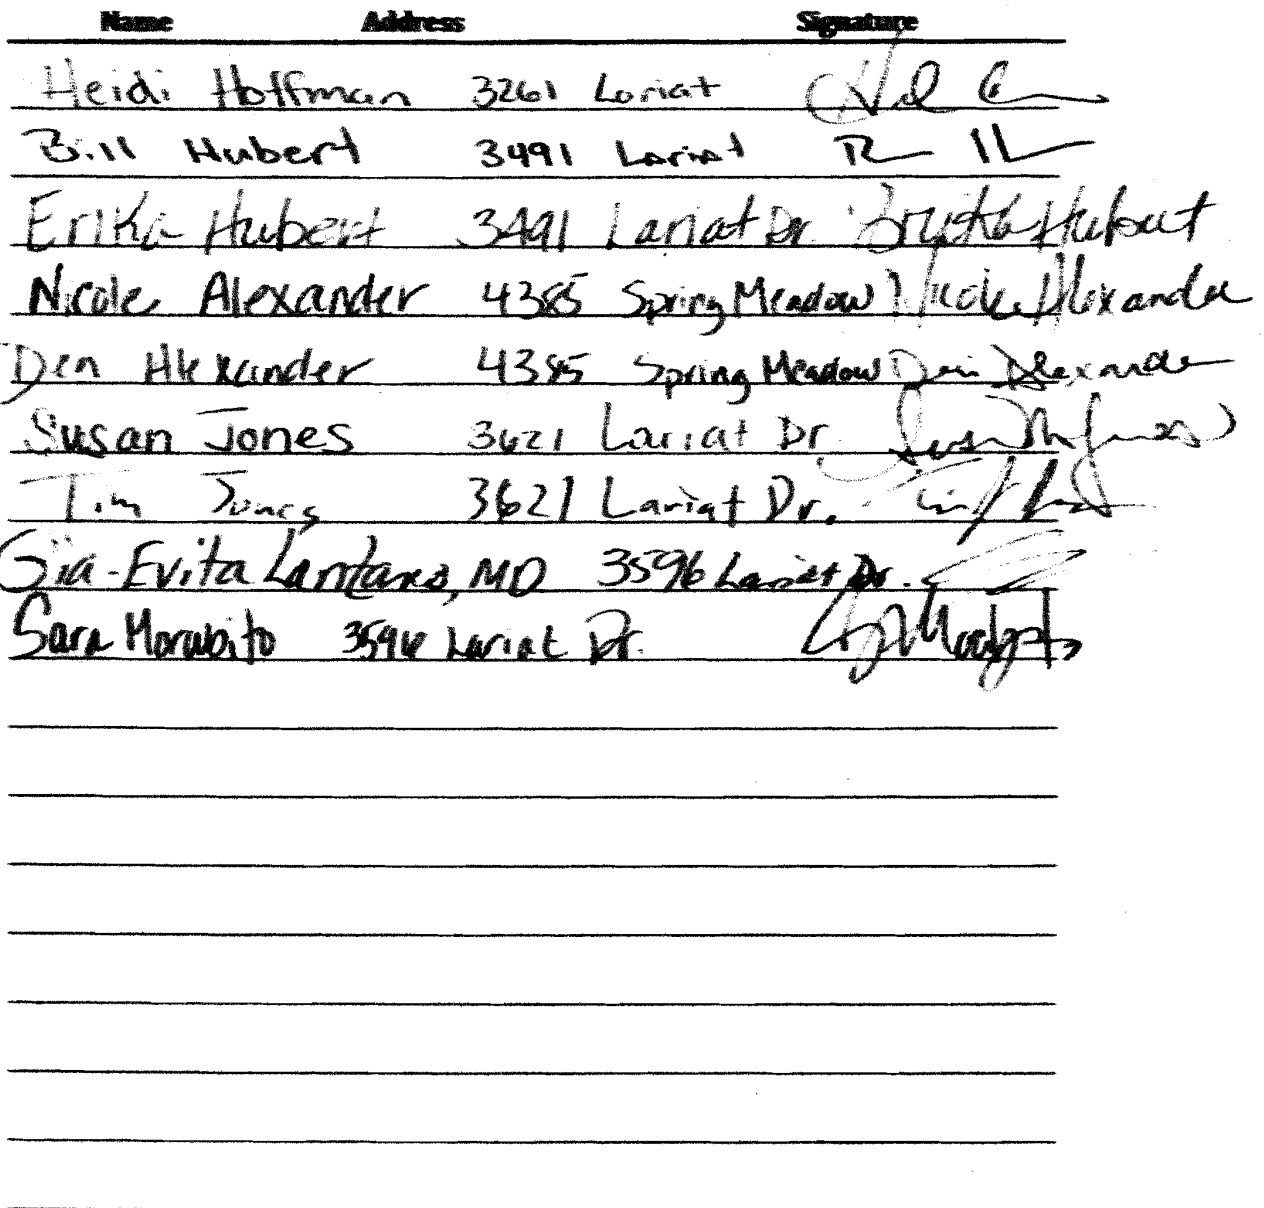 Name Address Signature
Heidi Hoffman 3261 Loriat
Bill Hubert 3491 Lariat
Erika Hubert 3491 Lariat Dr. Hubert
Nicole Alexander 4385 Spring Meadow Nicole Alexander
Den Alexander 4385 Spring Meadow Alexander
Susan Jones 3621 Lariat Dr. Susan Jones
Tim Jones 3621 Lariat Dr.
Gia-Evita MD 3596 Lariat Dr.
Sara Morabito 3596 Lariat Dr.